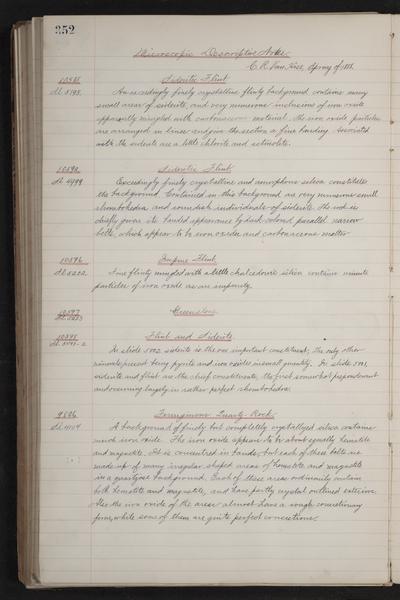 352
Microscopic Descriptive Notes.
C. R. Van Hise, Spring of 188
Sideritic Flint
An exceedingly finely crystalline flinty background contains many
small areas of siderite, and very numerous inclusions of iron oxide
apparently mingled with carbonaceous material. The iron oxide particles
are arranged in lines and give the section a fine banding. Associated
with the siderite are a little chlorite and actinolite.
Sideritic Flint
Exceedingly finely crystalline and amorphous silica constitutes
the background. Contained in this background are very numerous small
rhombohedra and roundish individuals of siderite. The rock is
chiefly given its banded appearance by dark colored parallel narrow
belts, which appear to be iron oxides and carbonaceous matter
10596
Impure Flint
Fine flinty mingled with a little chalcedonic silica contains minute
particles of iron oxide as an impurity.
10597
Greenstone
10598
Flint and Siderite
In slide 5492 siderite is the one important constituent; The only other
minerals present being pyrite and iron oxides in small quantity. In slide 5491,
siderite and flint are the chief constituents, the first somewhat preponderant
and occurring largely in rather perfect rhombohedra.
Ferruginous Quartz-Rock
A background of finely but completely crystallized silica contains
much iron oxide. The iron oxide appears to be about equally hematite
and magnetite. It is concentrated in bands, but each of these belts are
made up of many irregular shaped areas of hematite and magnetite
in a quartzose background. Each of these areas ordinarily contain
both hematite and magnetite, and have partly crystal outlined exteriors.
Also the iron oxide of the areas almost have a rough concretionary
form, while some of them are quite perfect concretions.